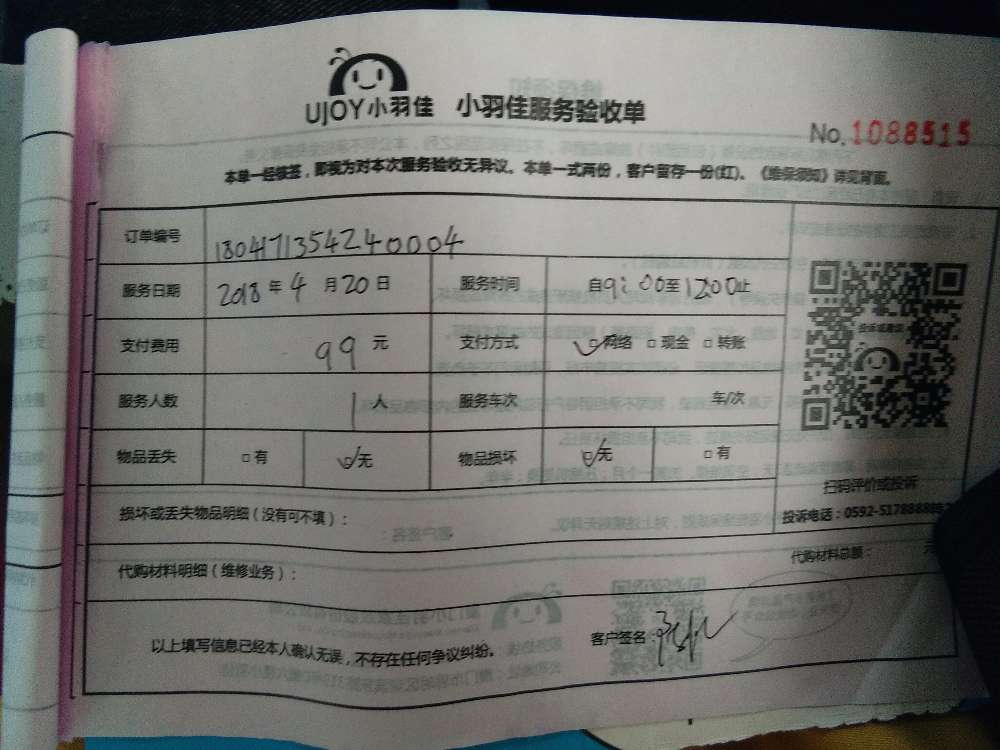 UJOY小羽佳 小羽佳服务验收单
No.1088515
本单一经核签，即视为对本次服务验收无异议。本单一式两份，客户留存一份(红)。《维保须知》详见背面。
订单编号 180417135424 0004
服务日期 2018年4月20日 服务时间 自9:00至12:00止
支付费用 99元 支付方式 □网络 □现金 □转账
服务人数 1人 服务车次 车/次
物品丢失 □有 □无 物品损坏 □无 □有
投诉或建议
扫码评价或投诉
投诉电话：0592-5178888
损坏或丢失物品明细（没有可不填）：
代购材料明细（维修业务）：
代购材料总额： 元
以上填写信息已经本人确认无误，不存在任何争议纠纷。
客户签名：